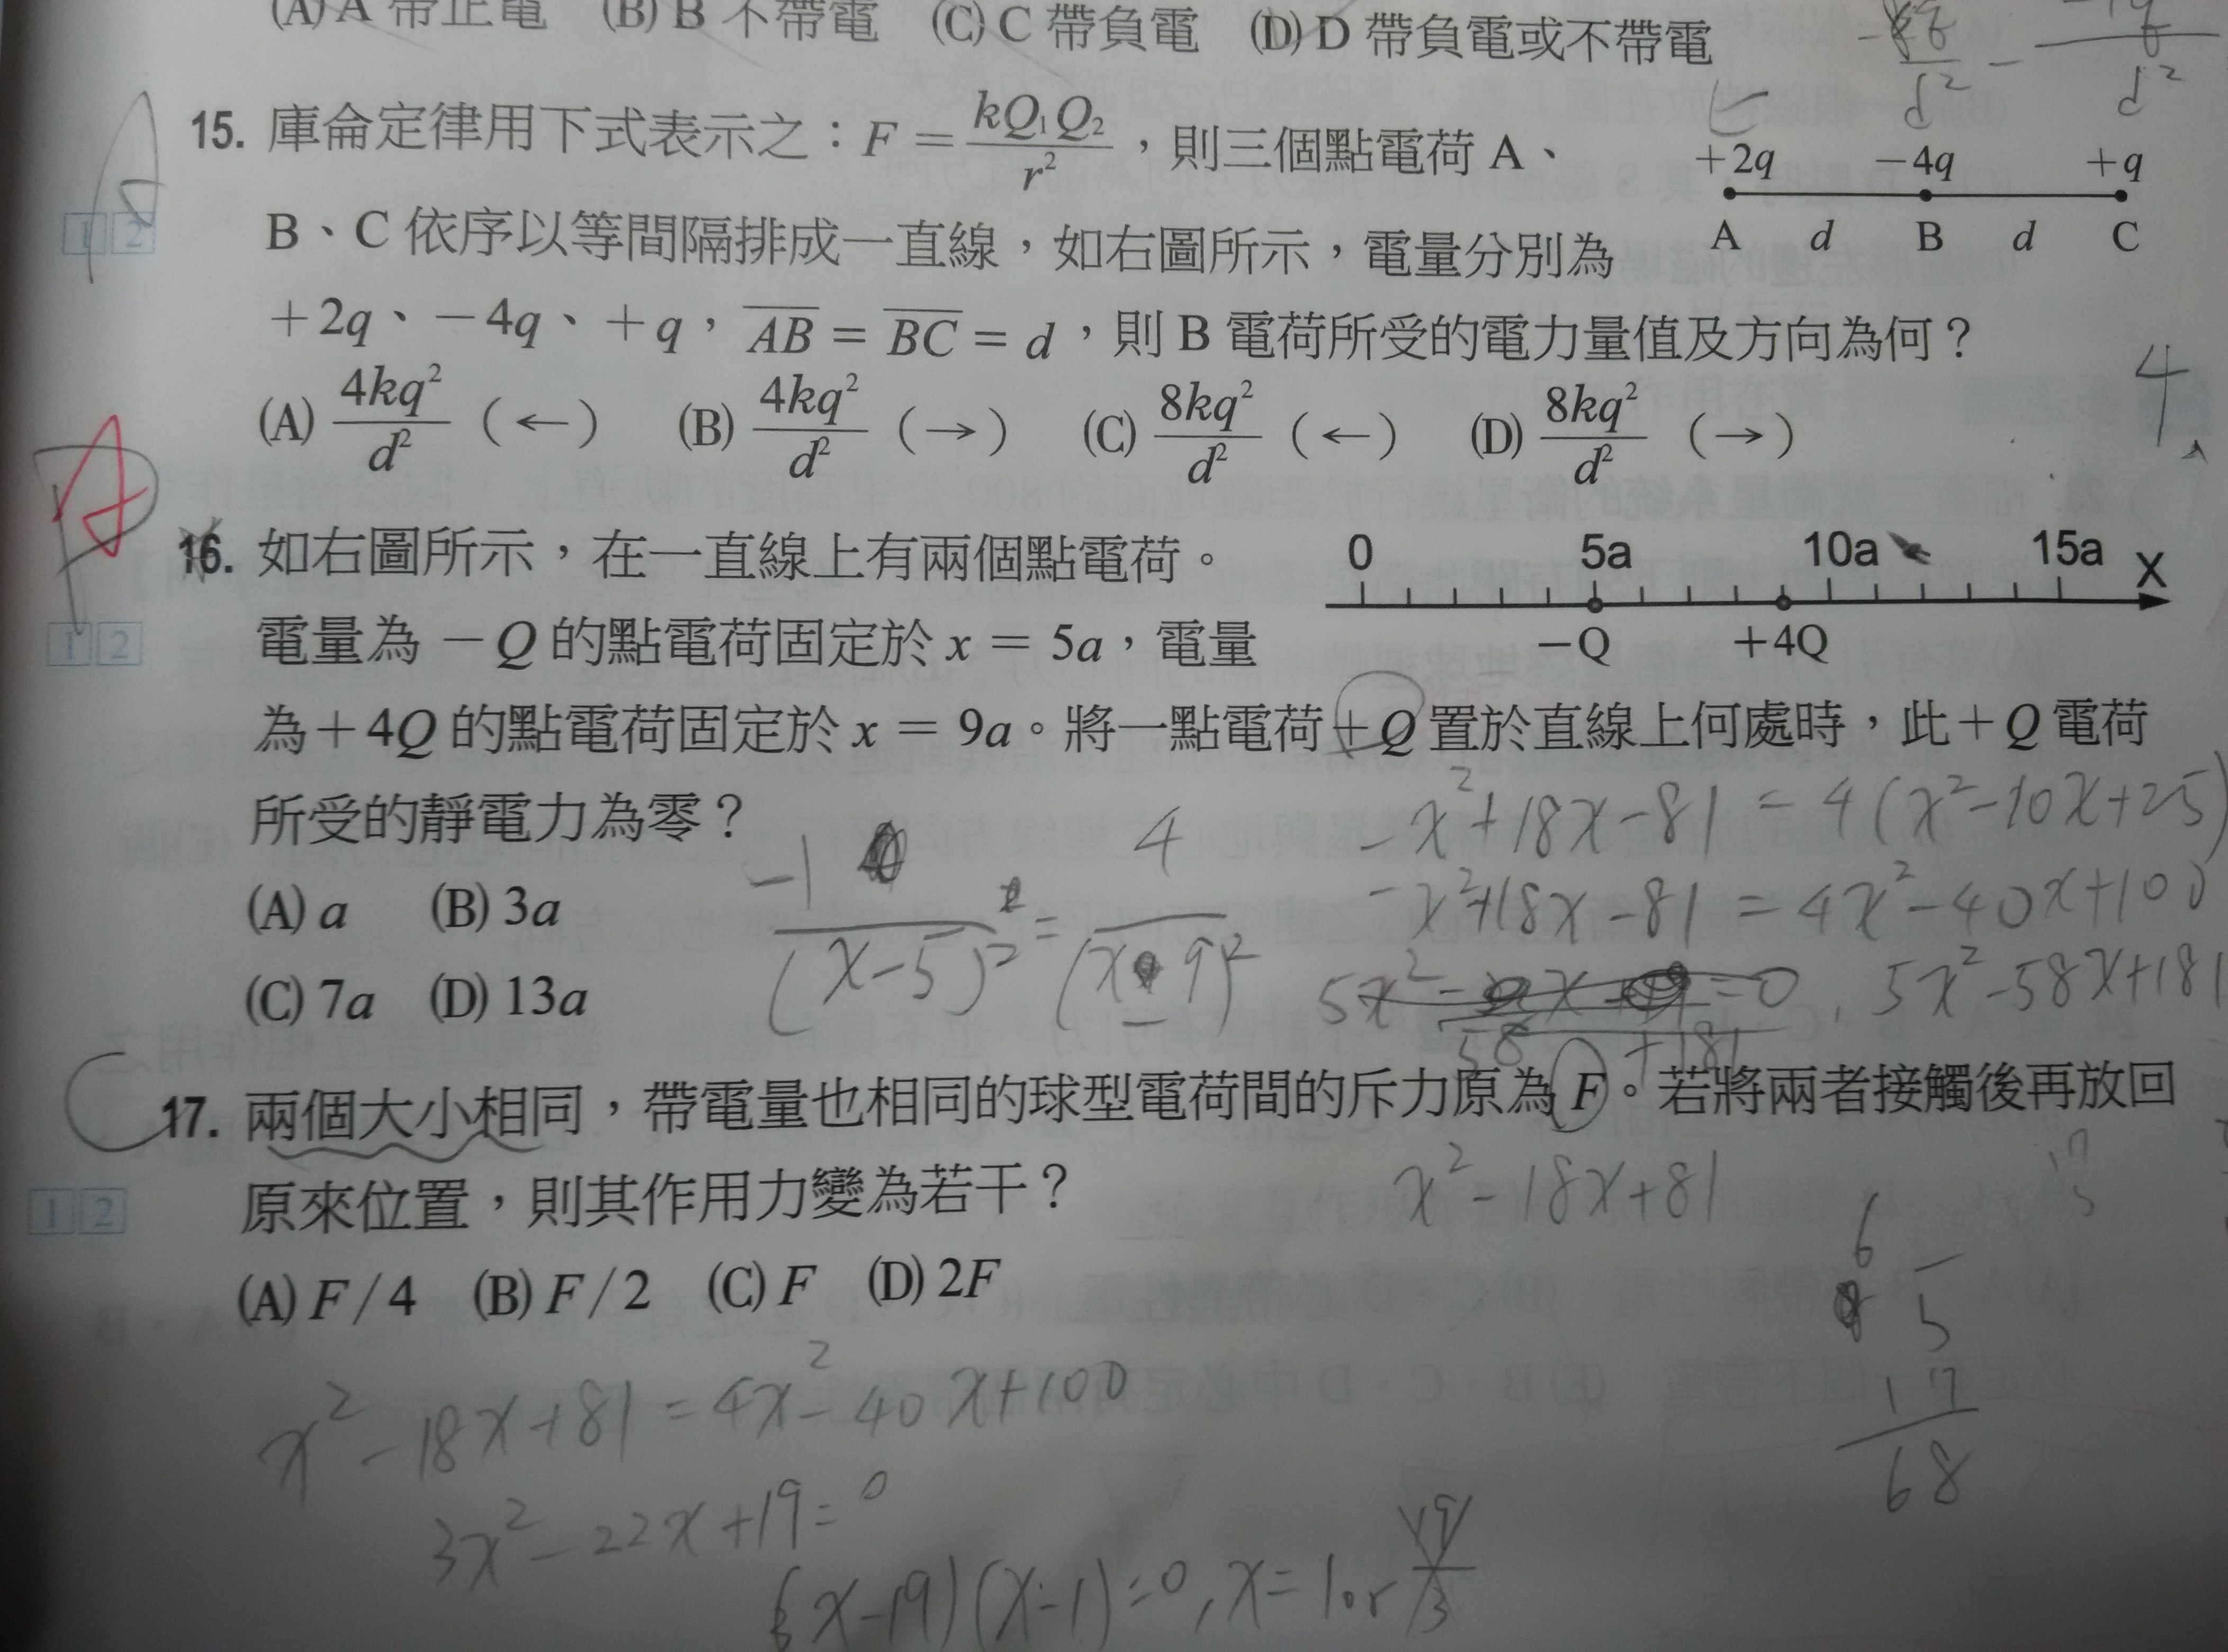 (A) A 帶正電 (B) B 不帶電 (C) C 帶負電 (D) D 帶負電或不帶電
15. 庫侖定律用下式表示之：F = kQ₁Q₂/r²，則三個點電荷 A、
B、C 依序以等間隔排成一直線，如右圖所示，電量分別為
+2q、−4q、+q，AB = BC = d，則 B 電荷所受的電力量值及方向為何？
(A) 4kq²/d² (←) (B) 4kq²/d² (→) (C) 8kq²/d² (←) (D) 8kq²/d² (→)
+2q −4q +q
A d B d C
1 2
4
16. 如右圖所示，在一直線上有兩個點電荷。
電量為 −Q 的點電荷固定於 x = 5a，電量
為+4Q 的點電荷固定於 x = 9a。將一點電荷+Q 置於直線上何處時，此+Q 電荷
所受的靜電力為零？
(A) a (B) 3a
(C) 7a (D) 13a
0 5a 10a 15a X
−Q +4Q
1 2
-1/(x-5)² = 4/(x-9)²
-x²+18x-81 = 4(x²-10x+25)
-x²+18x-81 = 4x²-40x+100
5x²-58x+181
17. 兩個大小相同，帶電量也相同的球型電荷間的斥力原為 F。若將兩者接觸後再放回
原來位置，則其作用力變為若干？
(A) F/4 (B) F/2 (C) F (D) 2F
1 2
x²-18x+81
x²-18x+81=4x²-40x+100
3x²-22x+19=0
(3x-19)(x-1)=0, x=1 or 19/3
6
5
17
68